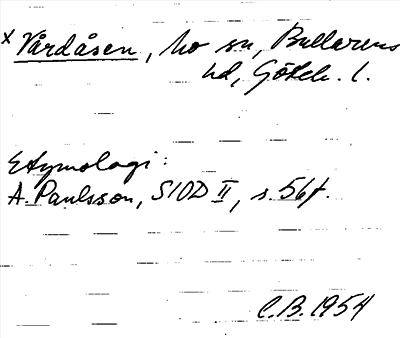 x Vårdåsen, Mo sn, Bullarens
hd, Göteb. l.
Etymologi:
A. Paulsson, SIOD II, s. 56f.
C.B. 1954